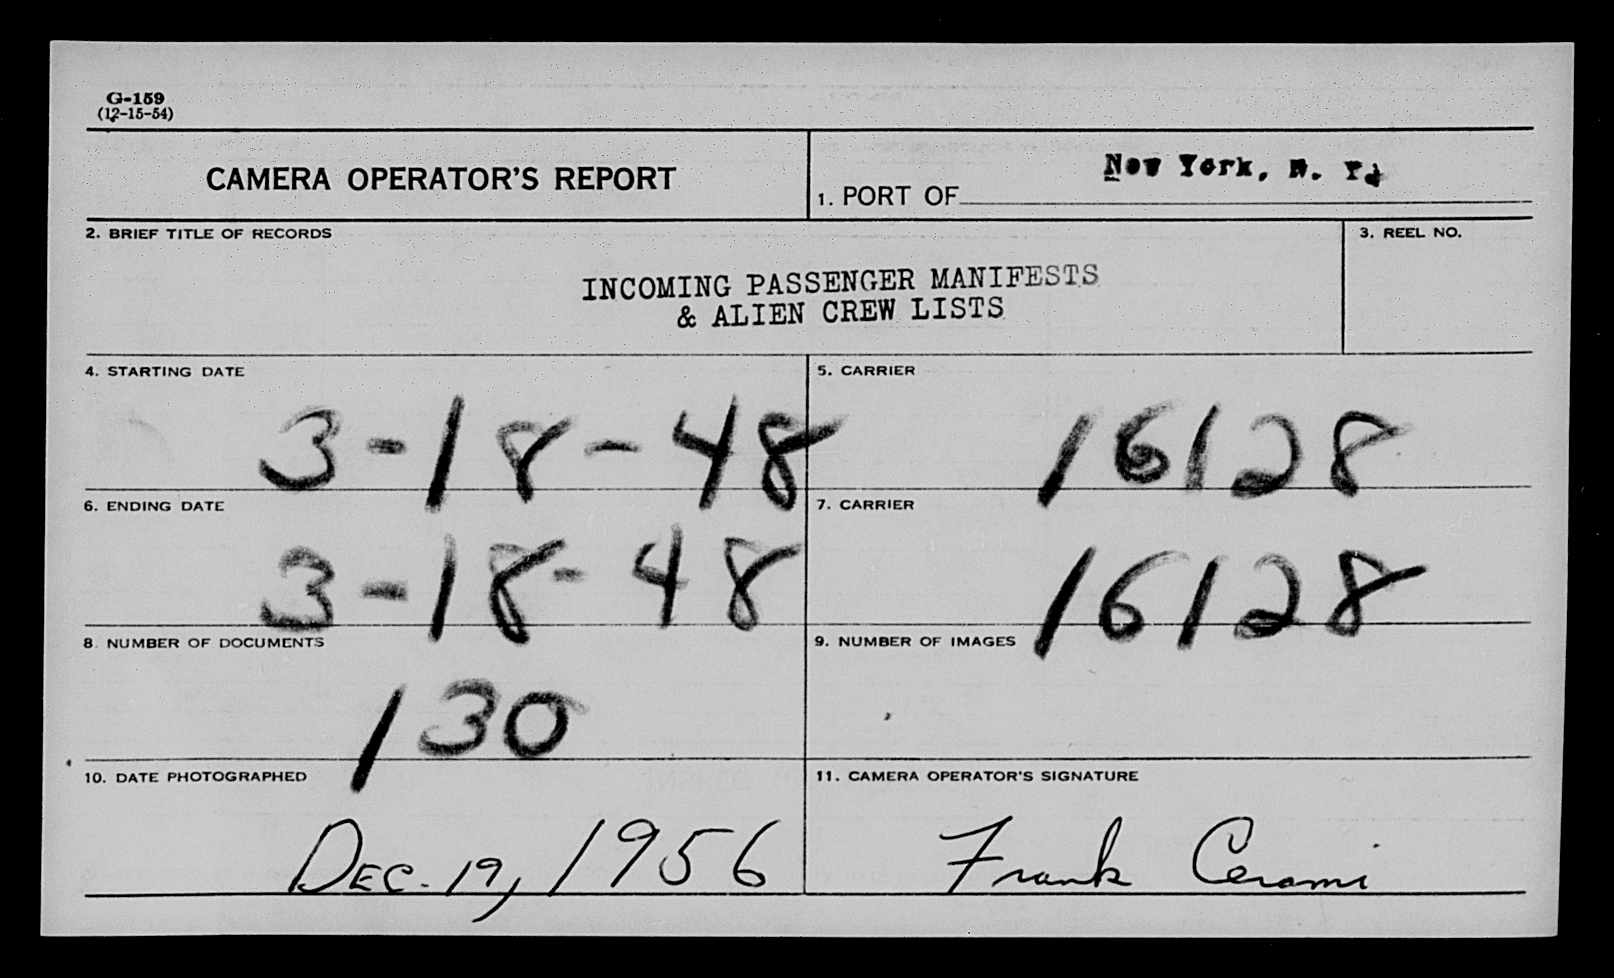 G-159
(12-15-54)
CAMERA OPERATOR'S REPORT
1. PORT OF New York, N. Y.
2. BRIEF TITLE OF RECORDS
3. REEL NO.
INCOMING PASSENGER MANIFESTS
& ALIEN CREW LISTS
4. STARTING DATE
3-18-48
5. CARRIER
16128
6. ENDING DATE
3-18-48
7. CARRIER
16128
8. NUMBER OF DOCUMENTS
130
9. NUMBER OF IMAGES
10. DATE PHOTOGRAPHED
DEC. 19, 1956
11. CAMERA OPERATOR'S SIGNATURE
Frank Cerami